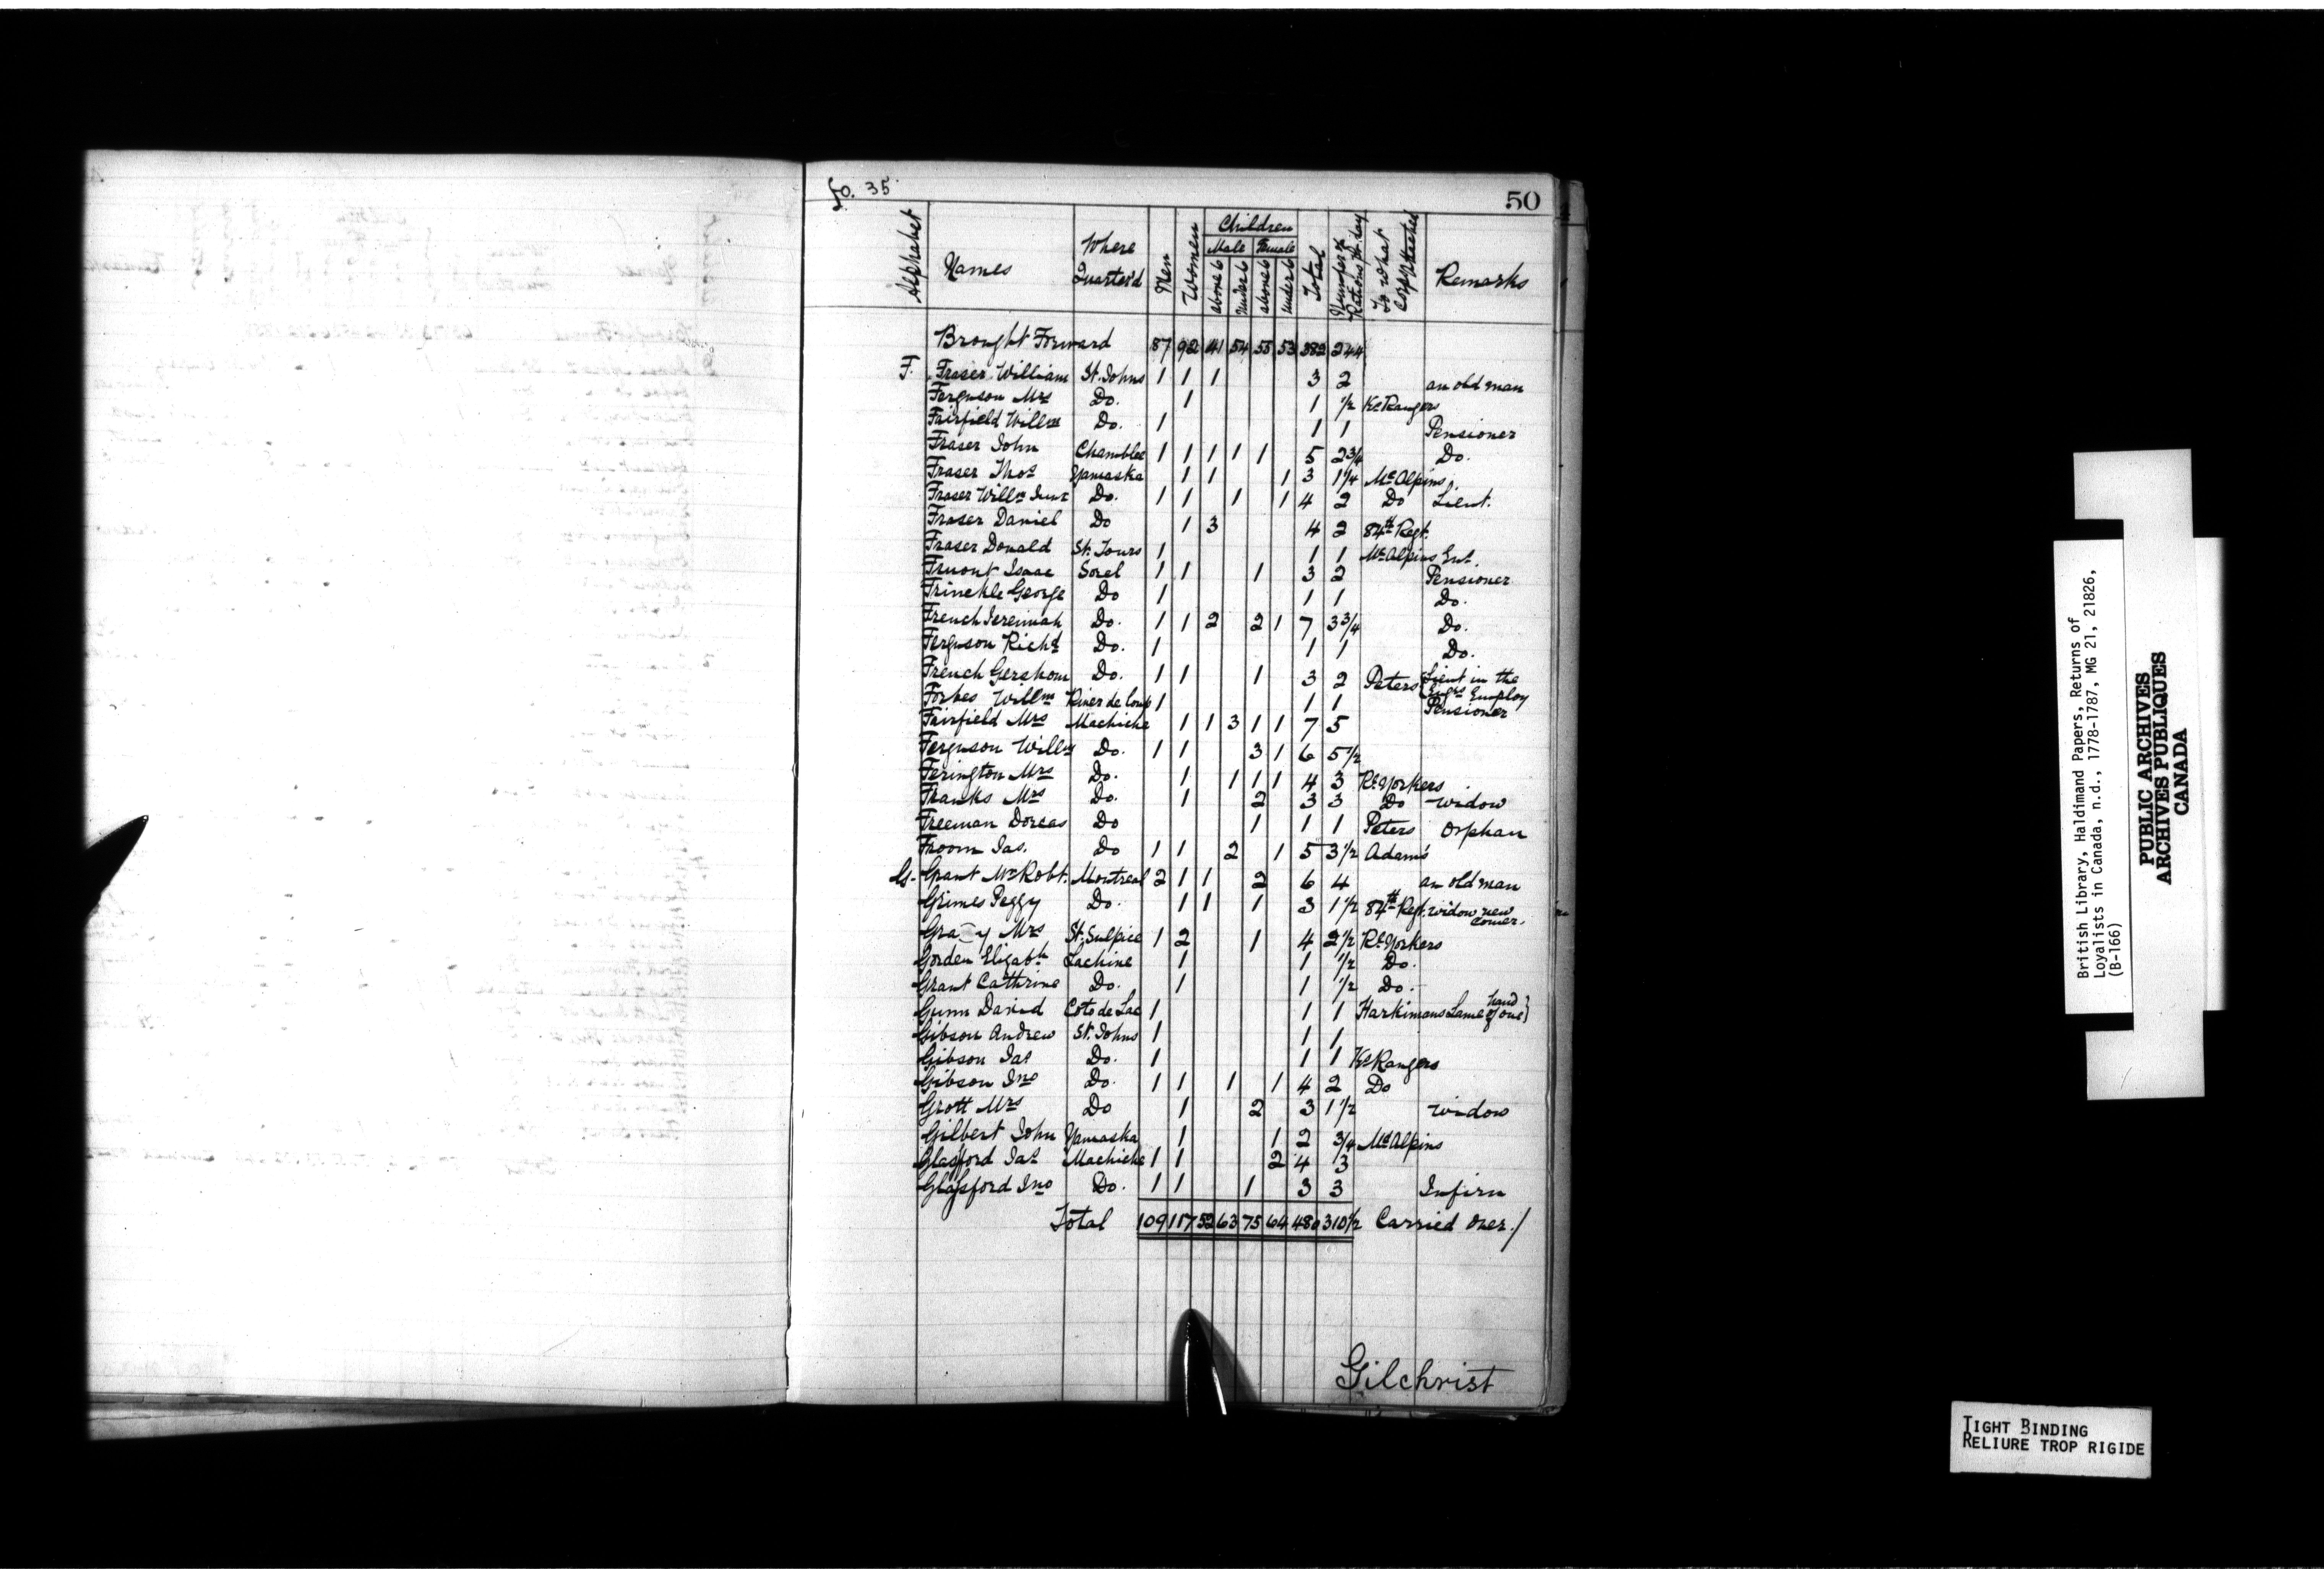 fo. 35
50
Alphabet Names Where Quarter'd Men Women Children Male Female above 6 under 6 above 6 under 6 Total Number of Rations pr. day To what Corps Attached Remarks
Brought Forward 87 92 41 54 55 53 382 244
F. Fraser William St. Johns 1 1 1 3 2 an old man
Ferguson Mrs Do. 1 1 1/2 Ks Rangers
Fairfield Willm Do. 1 1 1 Pensioner
Fraser John Chamblee 1 1 1 1 1 5 2 3/4 Do.
Fraser Thos Yamaska 1 1 1 3 1 1/4 McAlpins
Fraser Willm Junr Do. 1 1 1 1 4 2 Do Lieut.
Fraser Daniel Do 1 3 4 2 84th Regt.
Fraser Donald St. Tours 1 1 1 McAlpins Ent.
Fruont Isaac Sorel 1 1 1 3 2 Pensioner
Frinckle George Do 1 1 1 Do.
French Jeremiah Do. 1 1 2 2 1 7 3 3/4 Do.
Ferguson Richd Do. 1 1 1 Do.
French Gershom Do. 1 1 1 3 2 Peters Lieut in the Engrs Employ
Forbes Willm River de Loup 1 1 1 Pensioner
Fairfield Mrs Machiche 1 1 3 1 1 7 5
Ferguson Willm Do. 1 1 3 1 6 5 1/2
Ferington Mrs Do. 1 1 1 1 4 3 Rl. Yorkers
Franks Mrs Do. 1 2 3 3 Do widow
Freeman Dorcas Do 1 1 1 Peters Orphan
Froom Jas. Do 1 1 2 1 5 3 1/2 Adams
G. Grant Mr Robt. Montreal 2 1 1 2 6 4 an old man
Grimes Peggy Do. 1 1 1 3 1 1/2 84th Regt. widow new comer.
Gra y Mrs St. Sulpice 1 2 1 4 2 1/2 Rl. Yorkers
Gorden Elizabh Lachine 1 1 1/2 Do.
Grant Cathrine Do. 1 1 1/2 Do.
Gunn David Coto de Lac 1 1 1 Harkimans Lame of one hand
Gibson Andrew St. Johns 1 1 1
Gibson Jas Do. 1 1 1 Ks Rangers
Gibson Jno Do. 1 1 1 1 4 2 Do
Grott Mrs Do 1 2 3 1 1/2 widow
Gilbert John Yamaska 1 1 2 3/4 McAlpins
Glasford Jas Machiche 1 1 2 4 3
Glasford Jno Do. 1 1 1 3 3 Infirn
Total 109 117 52 63 75 64 480 310 1/2 Carried over./
Gilchrist
British Library, Haldimand Papers, Returns of
Loyalists in Canada, n.d., 1778-1787, MG 21, 21826,
(B-166)
PUBLIC ARCHIVES
ARCHIVES PUBLIQUES
CANADA
TIGHT BINDING
RELIURE TROP RIGIDE